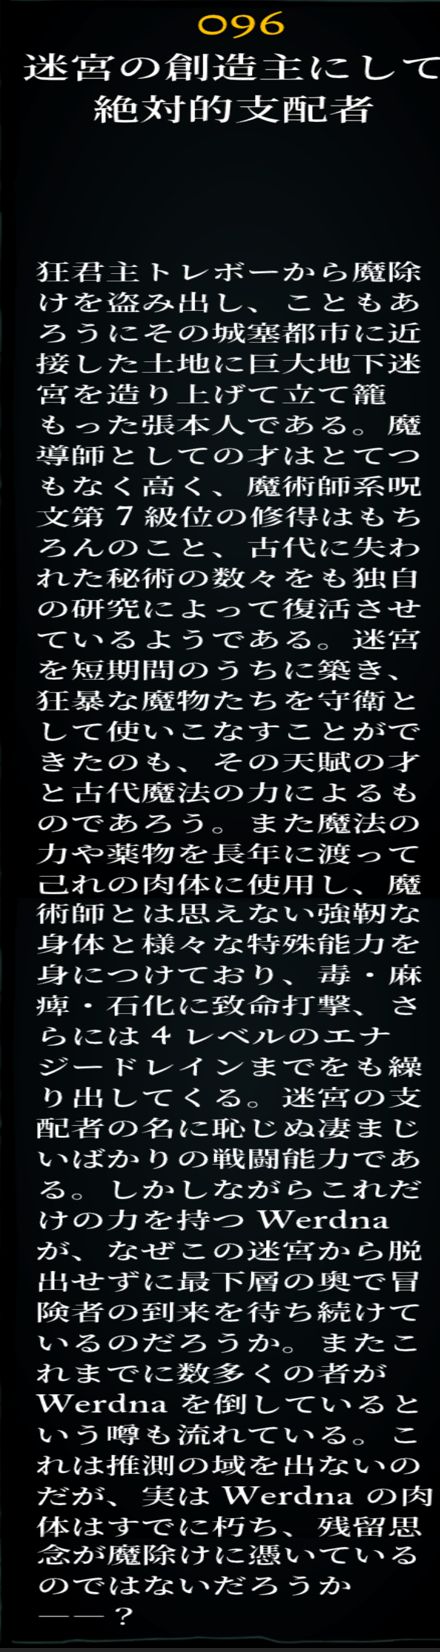 096
迷宮の創造主にして
絶対的支配者
狂君主トレボーから魔除
けを盗み出し、こともあ
ろうにその城塞都市に近
接した土地に巨大地下迷
宮を造り上げて立て籠
もった張本人である。魔
導師としての才はとてつ
もなく高く、魔術師系呪
文第 7 級位の修得はもち
ろんのこと、古代に失わ
れた秘術の数々をも独自
の研究によって復活させ
ているようである。迷宮
を短期間のうちに築き、
狂暴な魔物たちを守衛と
して使いこなすことがで
きたのも、その天賦の才
と古代魔法の力によるも
のであろう。また魔法の
力や薬物を長年に渡って
己れの肉体に使用し、魔
術師とは思えない強靭な
身体と様々な特殊能力を
身につけており、毒・麻
痺・石化に致命打撃、さ
らには 4 レベルのエナ
ジードレインまでをも繰
り出してくる。迷宮の支
配者の名に恥じぬ凄まじ
いばかりの戦闘能力であ
る。しかしながらこれだ
けの力を持つ Werdna
が、なぜこの迷宮から脱
出せずに最下層の奥で冒
険者の到来を待ち続けて
いるのだろうか。またこ
れまでに数多くの者が
Werdna を倒していると
いう噂も流れている。こ
れは推測の域を出ないの
だが、実は Werdna の肉
体はすでに朽ち、残留思
念が魔除けに憑いている
のではないだろうか
――？